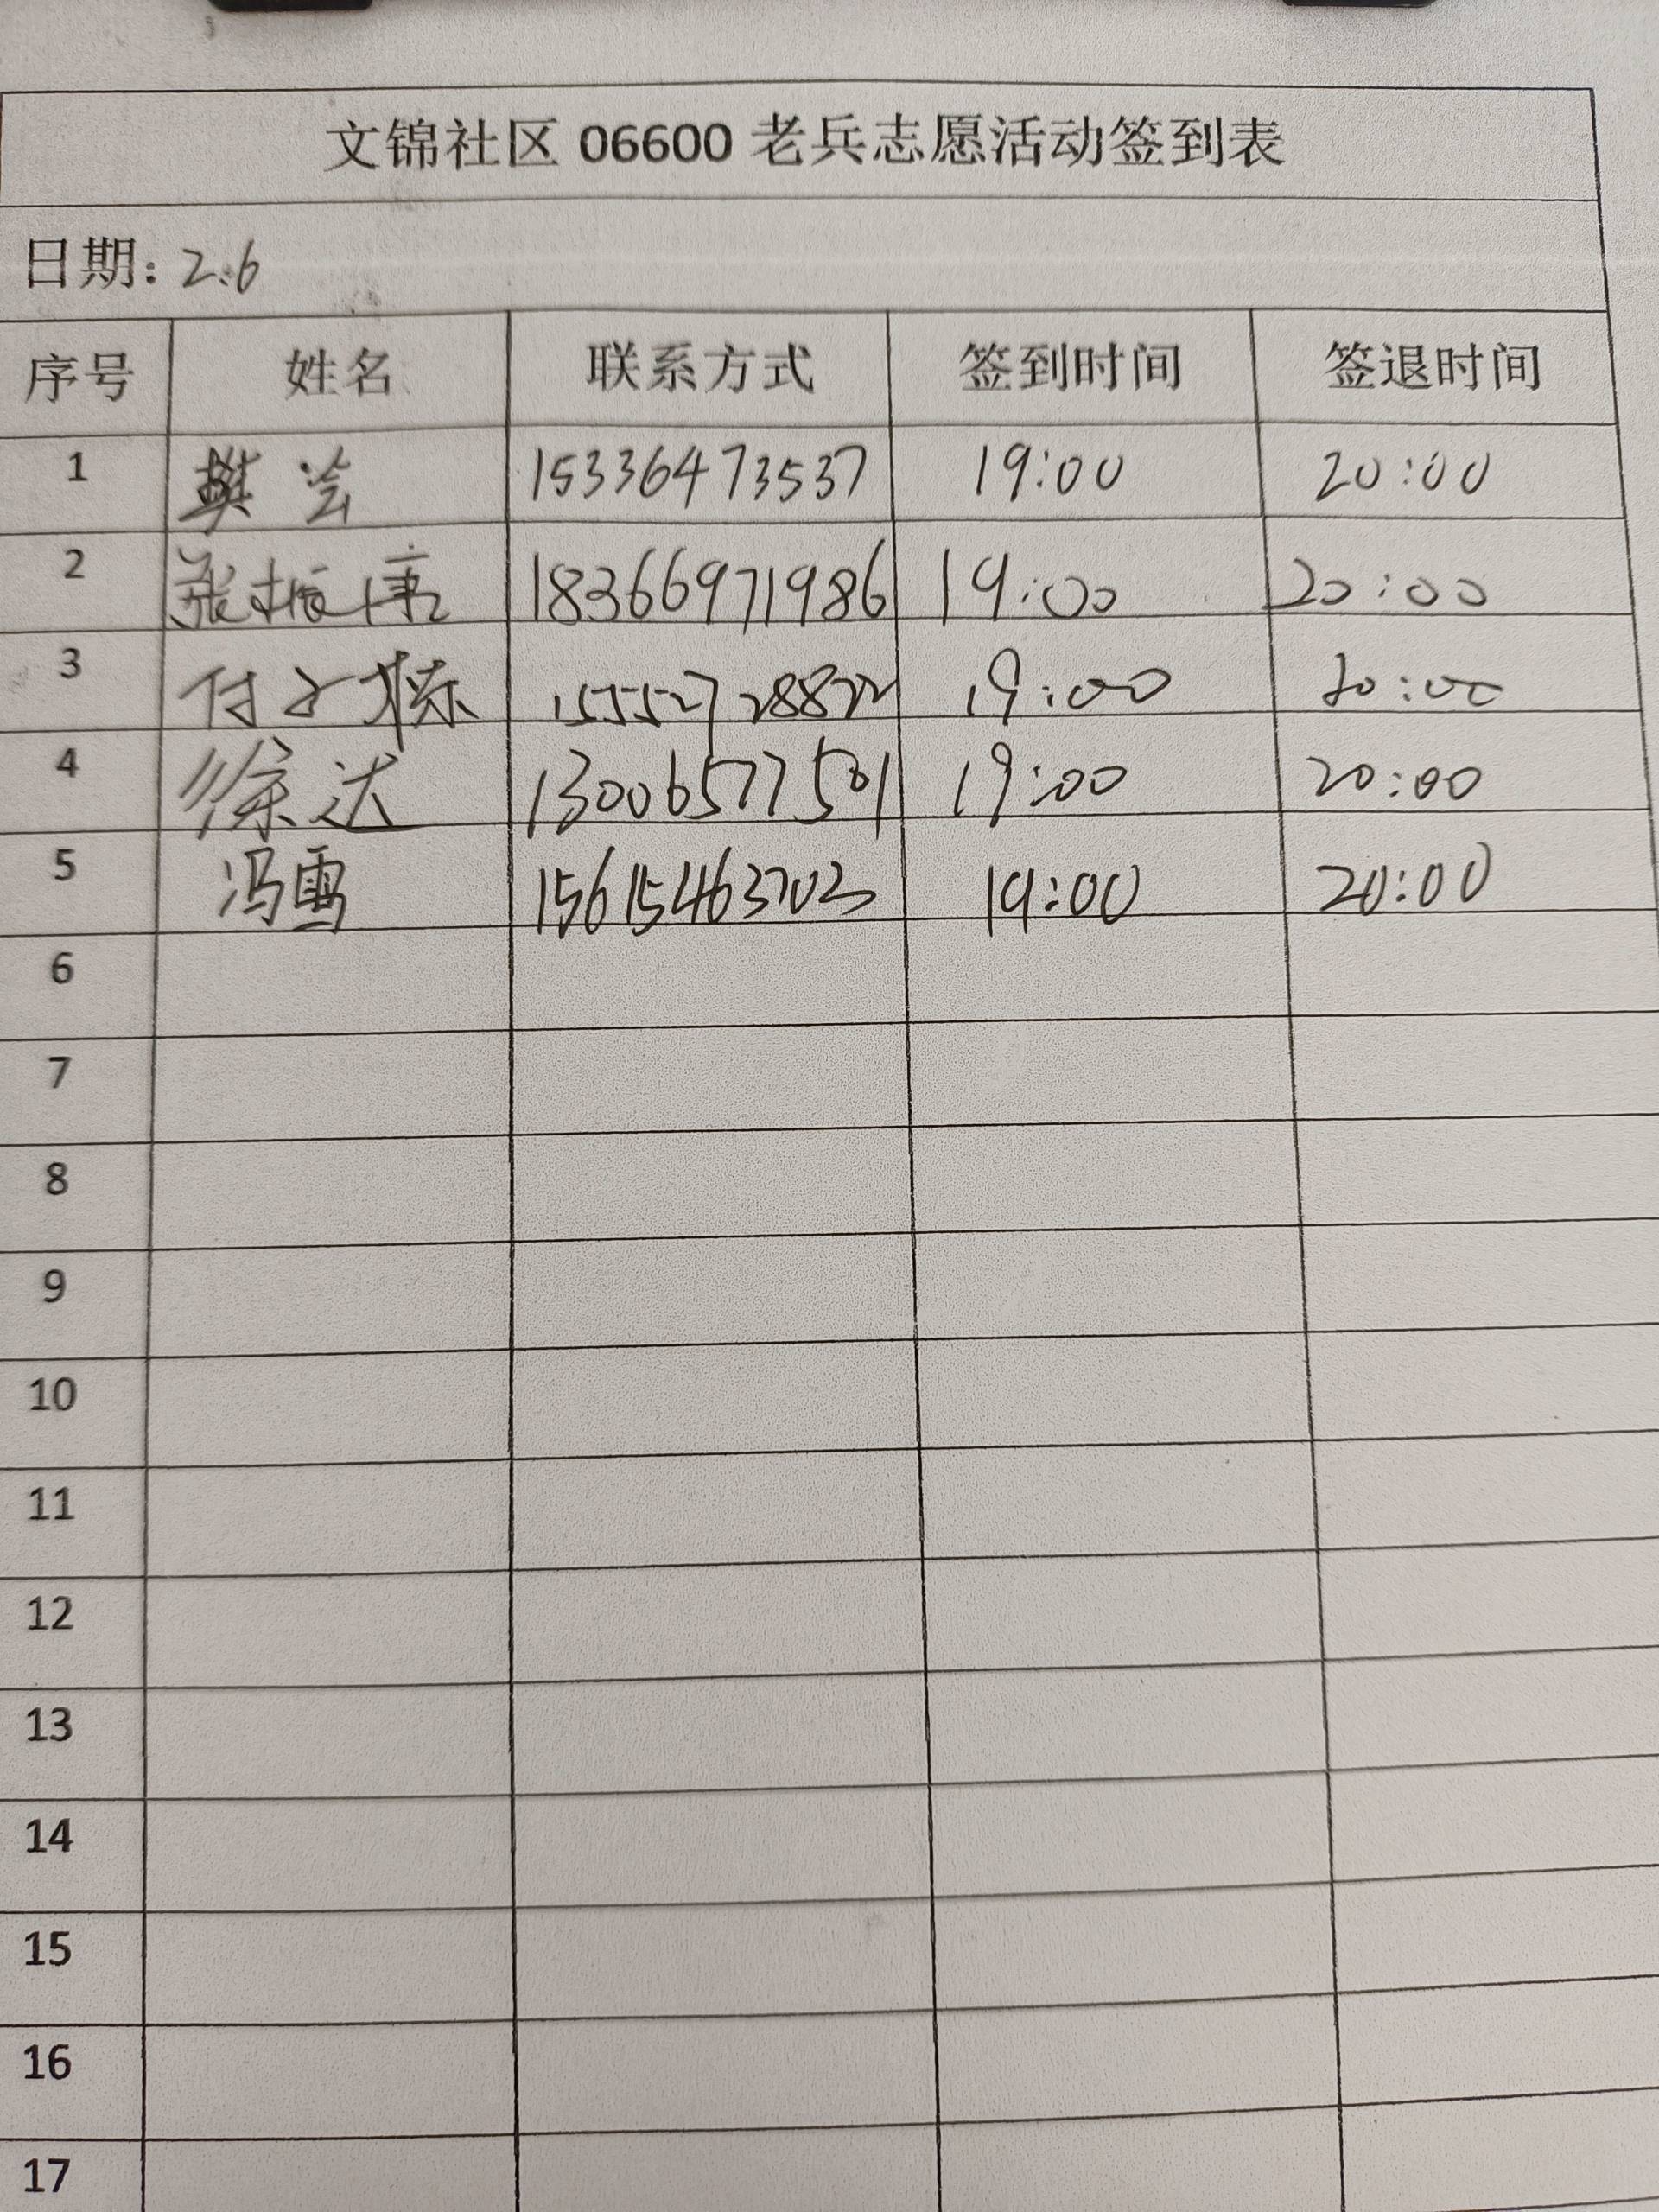 文锦社区 06600 老兵志愿活动签到表
日期: 2.6
序号 姓名 联系方式 签到时间 签退时间
1 樊会 15336473537 19:00 20:00
2 张振康 18366971986 19:00 20:00
3 付子栋 19:00 20:00
4 徐达 13006577501 19:00 20:00
5 冯雪 15615463703 19:00 20:00
6
7
8
9
10
11
12
13
14
15
16
17